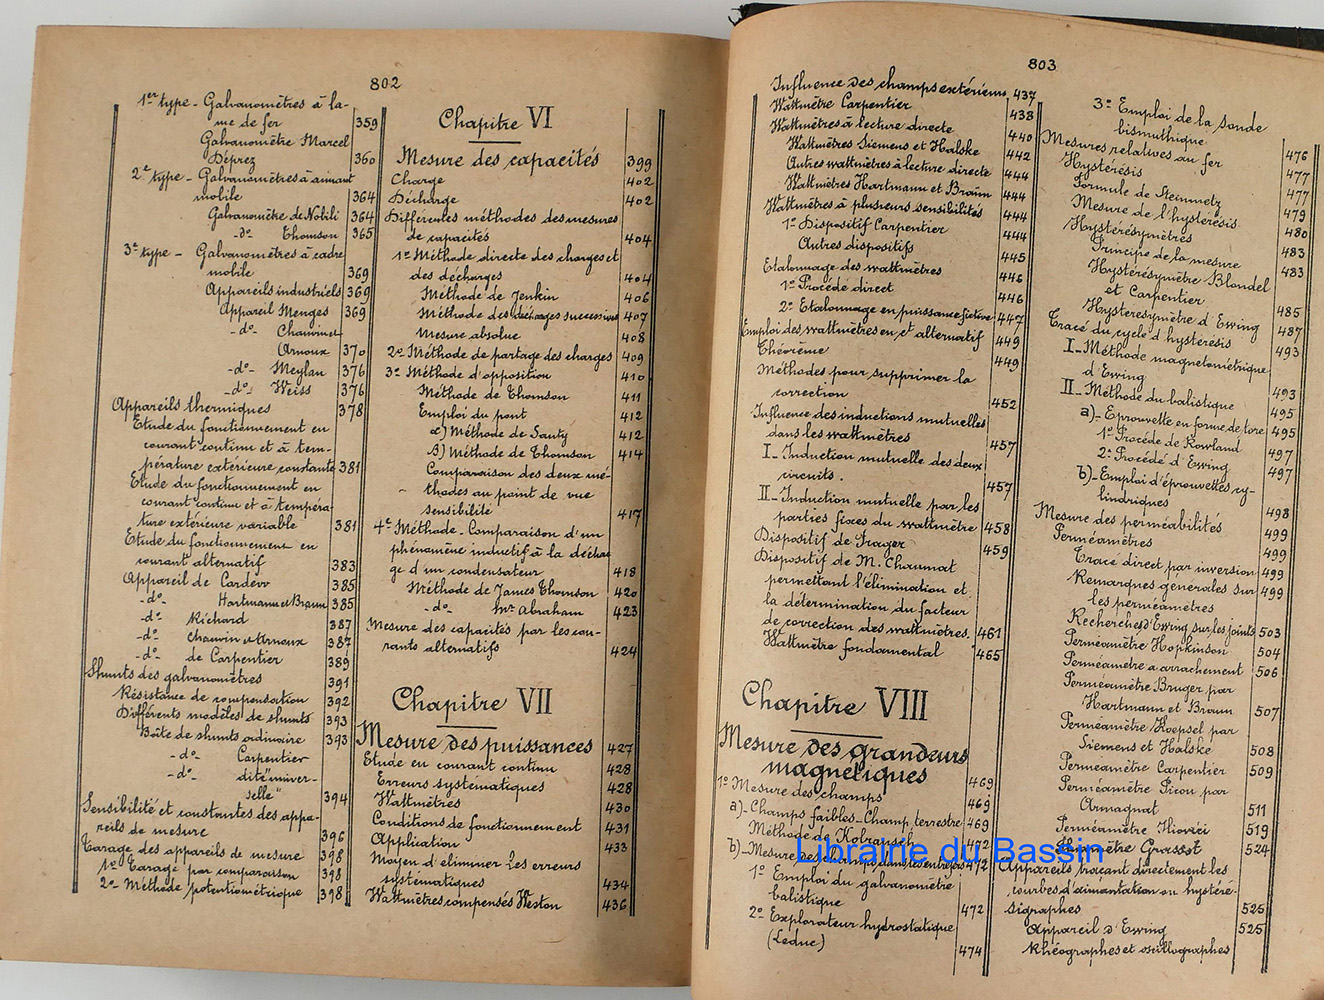 802
1er type - Galvanomètres à la-
me de fer 359
Galvanomètre Marcel
Déprez 360
2e type - Galvanomètres à aimant
mobile 364
Galvanomètre de Nobili 364
-do- Thomson 365
3e type - Galvanomètres à cadre
mobile 369
Appareils industriels 369
Appareil Menges 369
-do- Chauvin et
Arnoux 370
-do- Meylan 376
-do- Weiss 376
Appareils thermiques 378
Etude du fonctionnement en
courant continu et à tem-
pérature extérieure constante 381
Etude du fonctionnement en
courant continu et à tempéra-
ture extérieure variable 381
Etude du fonctionnement en
courant alternatif 383
Appareil de Cardew 385
-do- Hartmann et Braun 385
-do- Richard 387
-do- Chauvin et Arnoux 387
-do- de Carpentier 389
Shunts des galvanomètres 391
Résistance de compensation 392
Différents modèles de shunts 393
Boîte de shunts ordinaire 393
-do- Carpentier
-do- dite "univer-
selle" 394
Sensibilité et constantes des appa-
reils de mesure 396
Tarage des appareils de mesure 398
1o Tarage par comparaison 398
2o Méthode potentiométrique 398
Chapitre VI
Mesure des capacités 399
Charge 402
Décharge 402
Différentes méthodes des mesures
de capacités 404
1o Méthode directe des charges et
des décharges 404
Méthode de Jenkin 406
Méthode des décharges successives 407
Mesure absolue 408
2o Méthode de partage des charges 409
3o Méthode d'opposition 410
Méthode de Thomson 411
Emploi du pont 412
α) Méthode de Sauty 412
β) Méthode de Thomson 414
Comparaison des deux mé-
thodes au point de vue
sensibilité 417
4o Méthode - Comparaison d'un
phénomène inductif à la déchar
ge d'un condensateur 418
Méthode de James Thomson 420
-do- Mr Abraham 423
Mesure des capacités par les cou-
rants alternatifs 424
Chapitre VII
Mesure des puissances 427
Etude en courant continu 428
Erreurs systématiques 428
Wattmètres 430
Conditions de fonctionnement 431
Application 433
Moyen d'éliminer les erreurs
systématiques 434
Wattmètres compensés Weston 436
803
Influence des champs extérieurs 437
Wattmètre Carpentier 438
Wattmètres à lecture directe 440
Wattmètres Siemens et Halske 442
Autres wattmètres à lecture directe 444
Wattmètres Hartmann et Braun 444
Wattmètres à plusieurs sensibilités 444
1o Dispositif Carpentier 444
Autres dispositifs 445
Etalonnage des wattmètres 446
1o Procédé direct 446
2o Etalonnage en puissance fictive 447
Emploi des wattmètres en ct alternatif 449
Théorème 449
Méthodes pour supprimer la
correction 452
Influence des inductions mutuelles
dans les wattmètres 457
I - Induction mutuelle des deux
circuits. 457
II - Induction mutuelle par les
parties fixes du wattmètre 458
Dispositif de Frager 459
Dispositif de M. Chaumat
permettant l'élimination et
la détermination du facteur
de correction des wattmètres. 461
Wattmètre fondamental 465
Chapitre VIII
Mesure des grandeurs
magnétiques 469
1o Mesure des champs 469
a) - Champs faibles - Champ terrestre 469
Méthode de Kohrausch 472
b) - Mesure des champs dans les entrefers 472
1o Emploi du galvanomètre
balistique 472
2o Explorateur hydrostatique
(Leduc) 474
3o Emploi de la sonde
bismuthique 476
Mesures relatives au fer 477
Hystérésis 477
Formule de Steinmetz 479
Mesure de l'hystérésis 480
Hystérésymètres 483
Principe de la mesure 483
Hystérésymètre Blondel
et Carpentier 485
Hystérésymètre d'Ewing 487
Tracé du cycle d'hystérésis 493
I - Méthode magnétométrique
d'Ewing 493
II - Méthode du balistique 495
a) - Eprouvette en forme de tore 495
1o Procédé de Rowland 497
2o Procédé d'Ewing 497
b) - Emploi d'éprouvettes cy-
lindriques 498
Mesure des perméabilités 499
Perméamètres 499
Tracé direct par inversion 499
Remarques générales sur 499
les perméamètres
Recherches d'Ewing sur les joints 503
Perméamètre Hopkinson 504
Perméamètre à arrachement 506
Perméamètre Bruger par
Hartmann et Braun 507
Perméamètre Koepsel par
Siemens et Halske 508
Perméamètre Carpentier 509
Perméamètre Picou par
Armagnat 511
Perméamètre Iliovici 519
Perméamètre Grassot 524
Appareils traçant directement les
courbes d'aimantation ou hystéré-
sigraphes 525
Appareil d'Ewing 525
Rhéographes et oscillographes
Librairie du Bassin